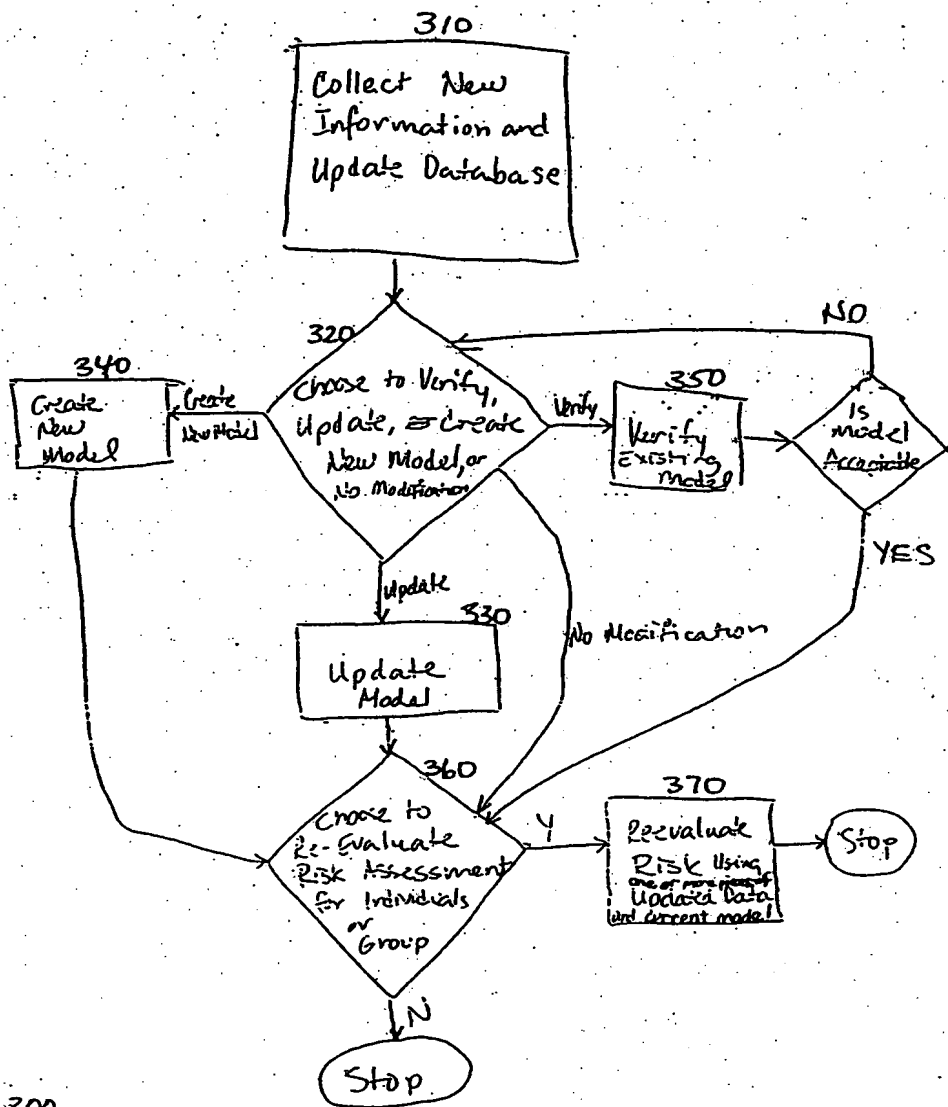 310
Collect New
Information and
Update Database
NO
320
340
350
Choose to Verify,
Update, or Create
New Model, or
No Modification
Create
New Model
Create
New
Model
Verify
Verify
Existing
Model
Is
Model
Acceptable
YES
Update
330
No Modification
Update
Model
360
370
Choose to
Re-Evaluate
Risk Assessment
for Individuals
or
Group
Y
Reevaluate
Risk Using
one or more pieces of
Updated Data
and current model
Stop
N
Stop
300